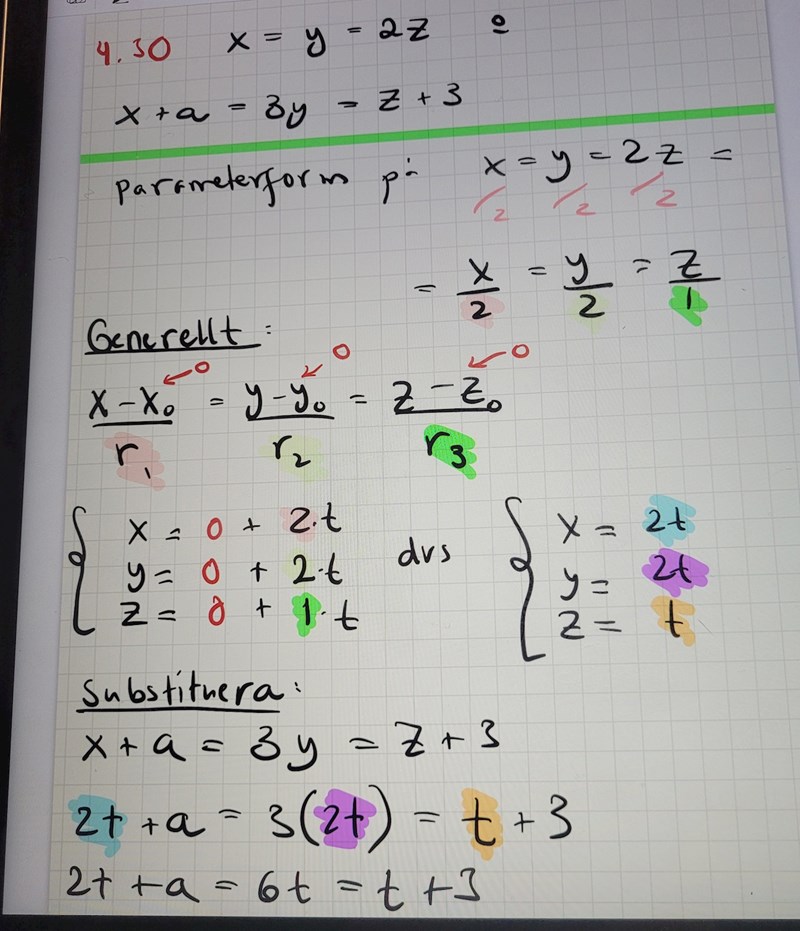 4.30 x = y = 2z º
x + a = 3y = z + 3
parameterform p: x = y = 2z =
/2 /2 /2
= x/2 = y/2 = z/1
Generellt:
0 0 0
x - x₀ / r₁ = y - y₀ / r₂ = z - z₀ / r₃
{ x = 0 + 2·t
y = 0 + 2·t dvs
z = 0 + 1·t
{ x = 2t
y = 2t
z = t
Substituera:
x + a = 3y = z + 3
2t + a = 3(2t) = t + 3
2t + a = 6t = t + 3